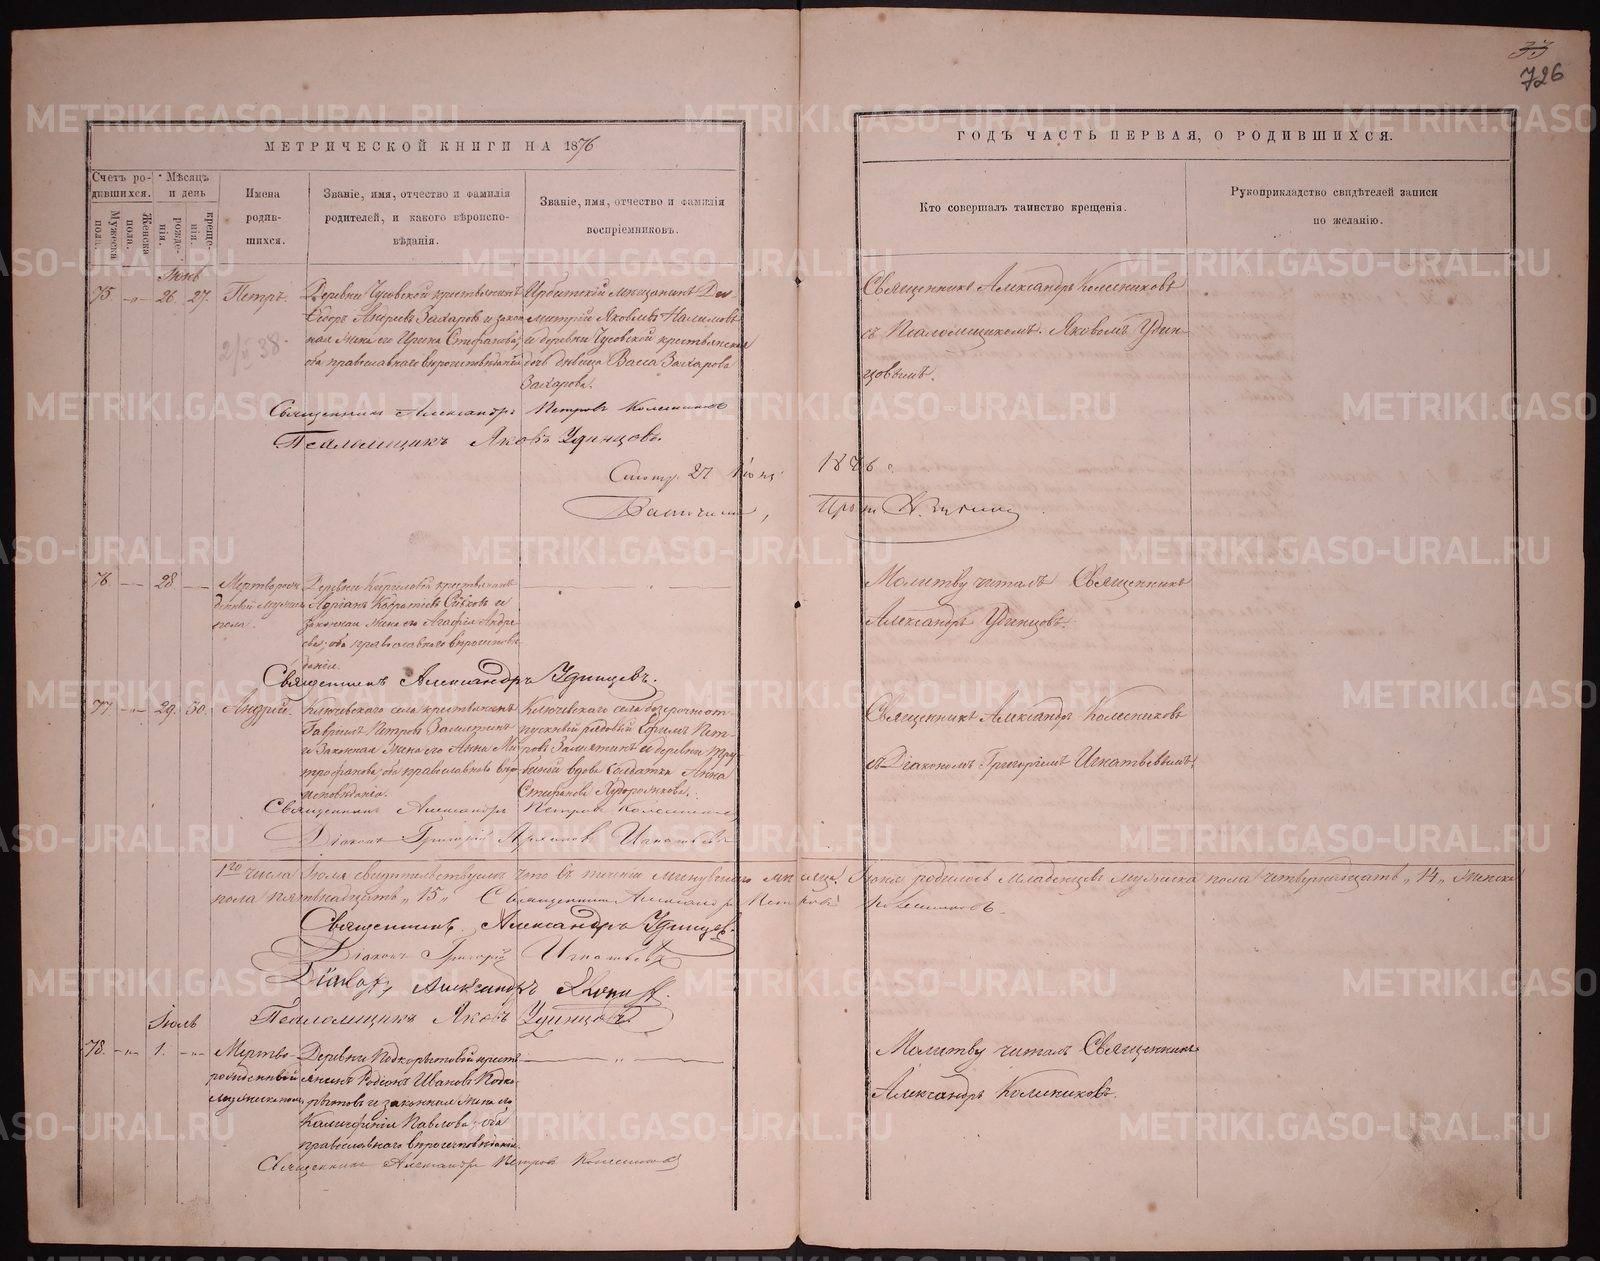 33
726
МЕТРИЧЕСКОЙ КНИГИ НА 1876
ГОДЪ ЧАСТЬ ПЕРВАЯ, О РОДИВШИХСЯ.
Счетъ ро-
дившихся.
Мужеска пола.
Женска пола.
Мѣсяцъ
и день
рожде-
нія.
креще-
нія.
Имена
родив-
шихся.
Званіе, имя, отчество и фамилія
родителей, и какого вѣроиспо-
вѣданія.
Званіе, имя, отчество и фамилія
воспріемниковъ.
Кто совершалъ таинство крещенія.
Рукоприкладство свидѣтелей записи
по желанію.
Іюнь
75. 26. 27. Петръ.
Деревни Чусовской крестьянинъ
Ѳедоръ Андреевъ Захаровъ и закон
ная жена его Ирина Стефанова,
оба православнаго вѣроисповѣданія
Ирбитскій мѣщанинъ Ди-
митрій Яковлевъ Налимовъ
и деревни Чусовской крестьянская
дочь дѣвица Васса Захарова
Захарова.
Священникъ Александръ Колесниковъ
съ Псаломщикомъ Яковомъ Удин-
цовымъ.
Священникъ Александръ Петровъ Колесниковъ
Псаломщикъ Яковъ Удинцовъ.
27 1876 г.
76 28
Мертворож
денный мужес
пола.
Деревни крестьянинъ
Адріанъ и
законная жена его Агафія Андре
ева, оба православнаго вѣроисповѣ
данія.
Молитву читалъ Священникъ
Александръ Удинцовъ.
Священникъ Александръ Удинцевъ.
77. 29. 30. Андрей.
Ключевскаго села крестьянинъ
Гавріилъ Петровъ Замятинъ
и законная жена его Анна Ми
трофанова, оба православнаго вѣро
исповѣданія.
Ключевскаго села безсрочноот-
пускный рядовый Ефимъ Пет-
ровъ Замятинъ и деревни
вдова солдатка Анна
Стефанова
Священникъ Александръ Колесниковъ
съ Діакономъ Григоріемъ Игнатьевымъ.
Священникъ Александръ Петровъ Колесниковъ
Діаконъ Григорій Игнатьевъ
1го числа Іюля свидѣтельствуемъ что въ теченіи минувшаго мѣсяца Іюня родилось младенцевъ мужеска пола четырнадцать „14„ женска
пола пятнадцать „15„ Священникъ Александръ Петровъ Колесниковъ.
Священникъ Александръ Удинцевъ.
Діаконъ Григорій Игнатьевъ
Александръ
Псаломщикъ Яковъ Удинцовъ
Іюль
78. 1.
Мертво-
рожденный
мужеска пола
Деревни Подкорытовой кресть
янинъ Родіонъ Ивановъ Подко-
рытовъ и законная жена его
Павлова, оба
православнаго вѣроисповѣданія.
Молитву читалъ Священникъ
Александръ Колесниковъ.
Священникъ Александръ Петровъ Колесниковъ
METRIKI.GASO-URAL.RU